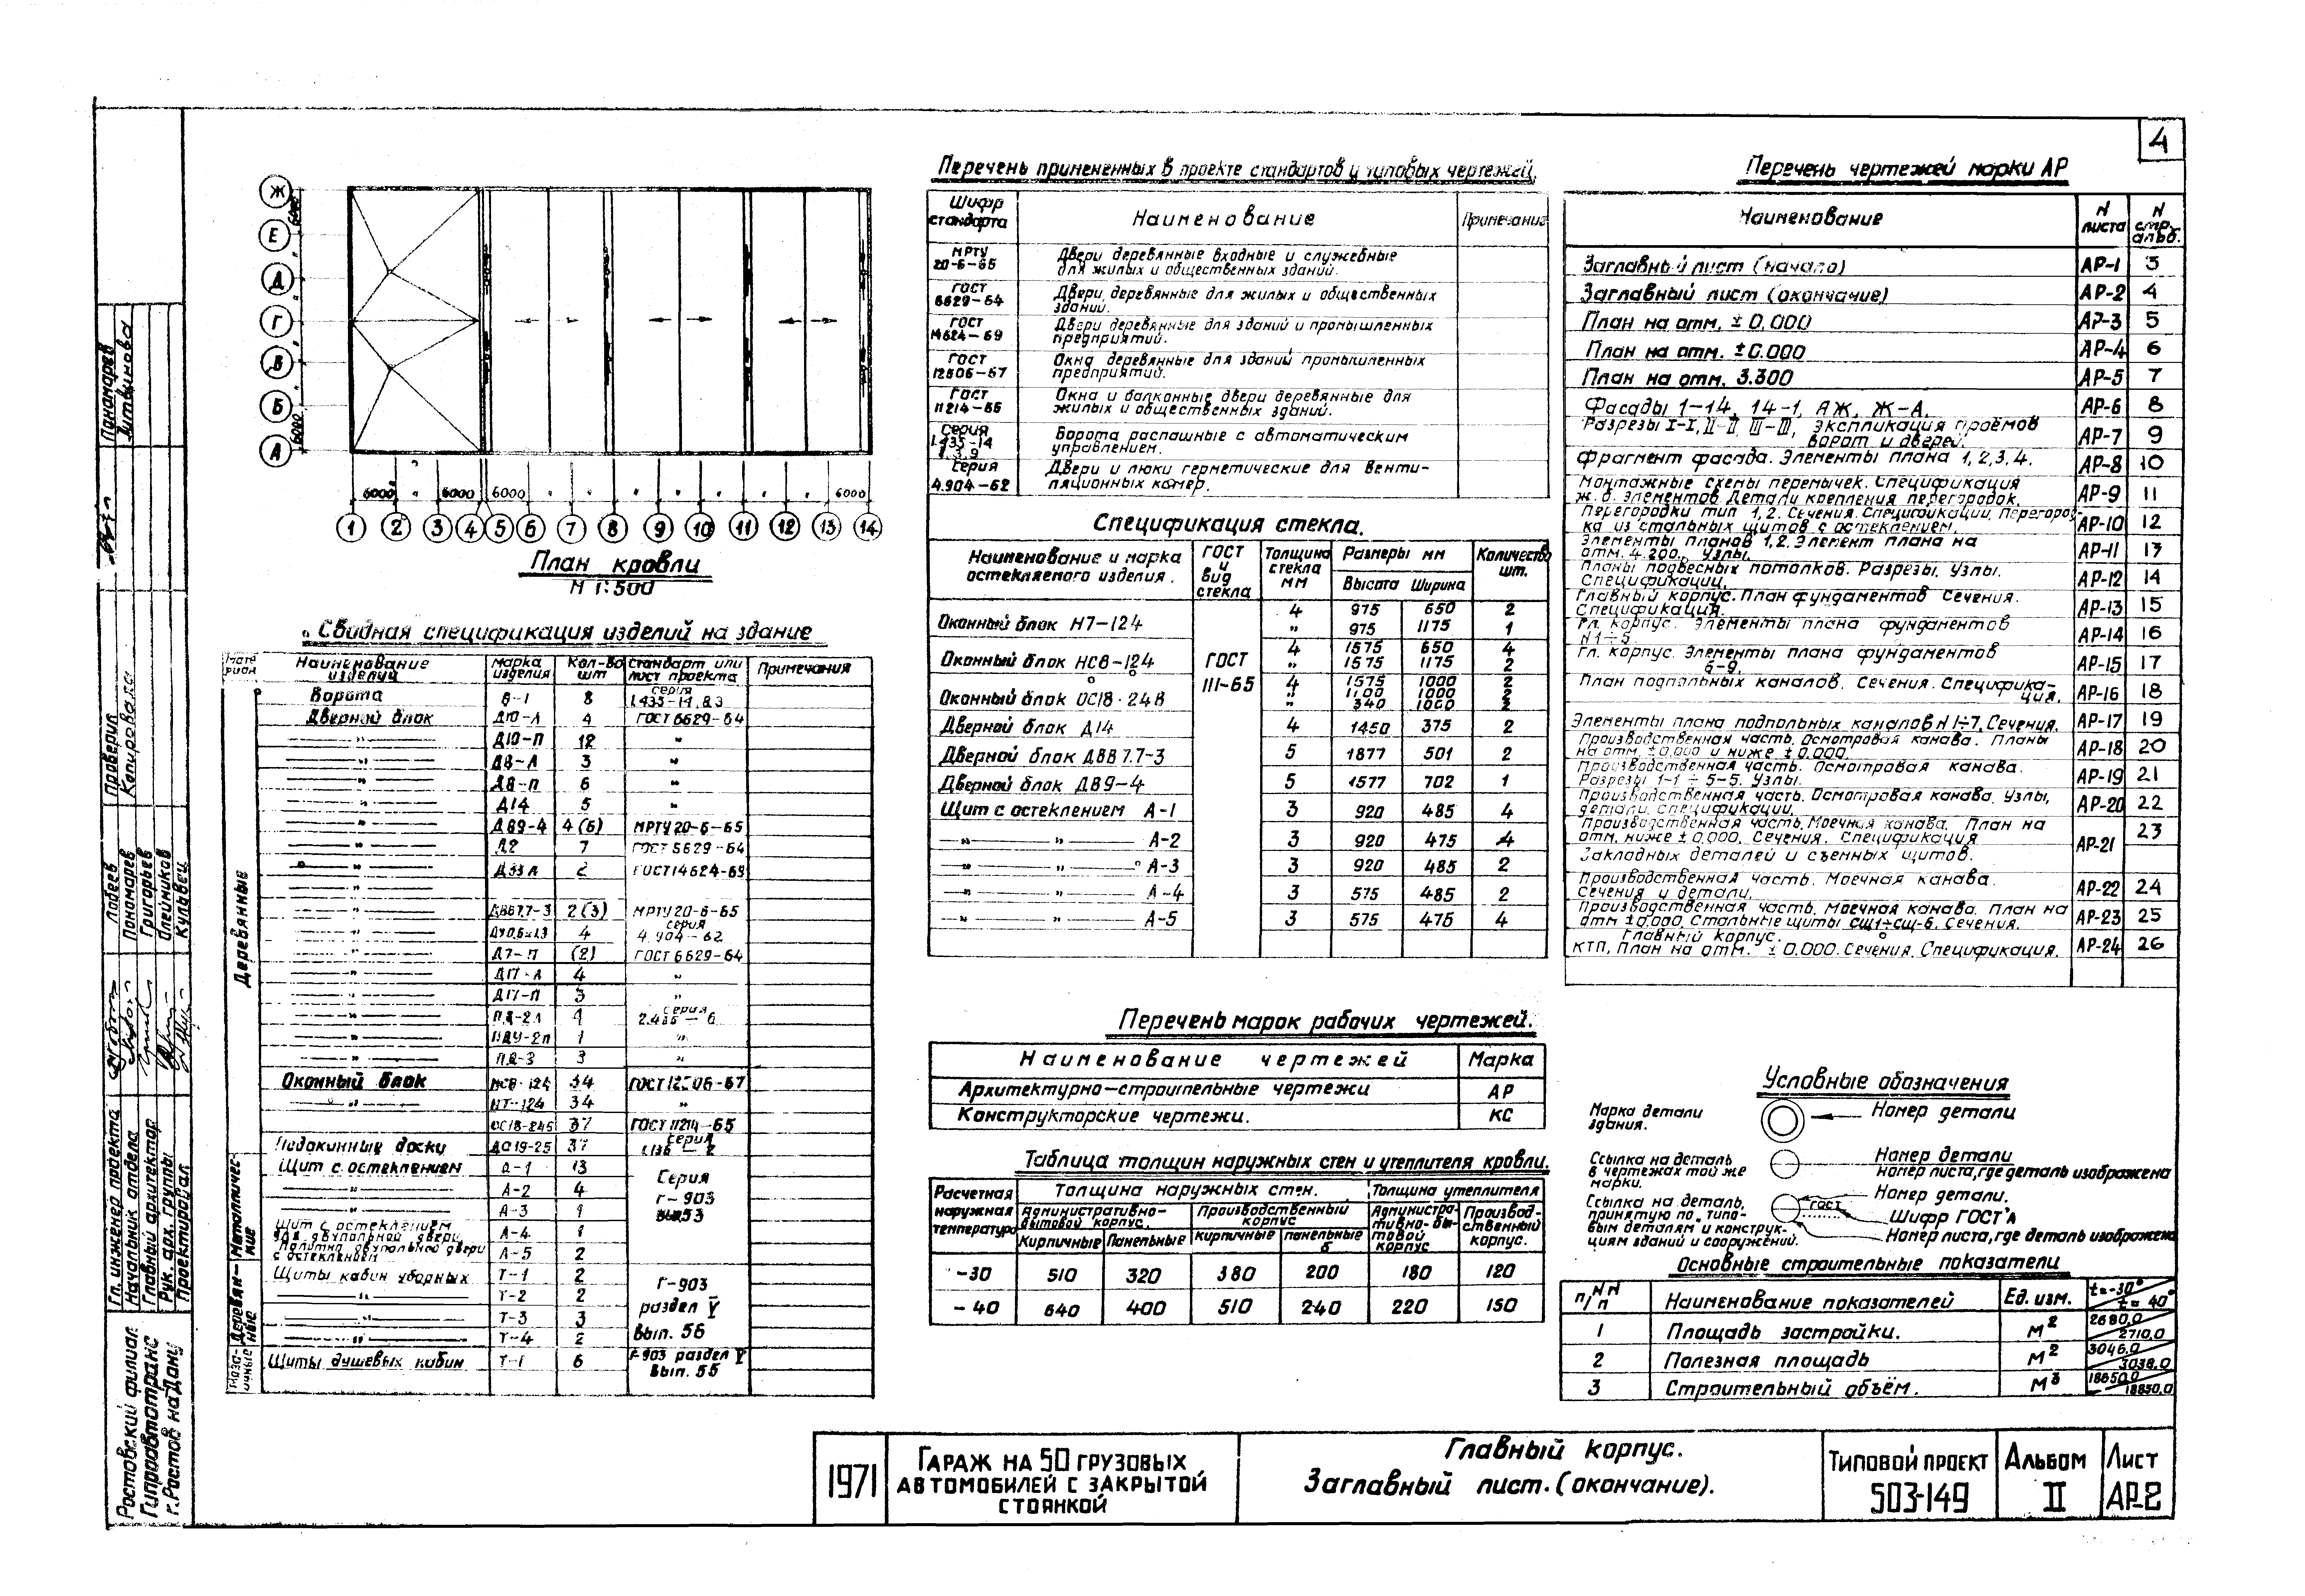 4
Ж
Е
Д
Г
В
Б
А
6000
6000
6000 6000 6000 6000
1 2 3 4 5 6 7 8 9 10 11 12 13 14
План кровли
М 1:500
Сводная спецификация изделий на здание
Материал Наименование изделий Марка изделия Кол-во шт Стандарт или лист проекта Примечания
Деревянные
Ворота В-1 8 серия
Дверной блок Д10-Л 4 ГОСТ 6629-64
—"— Д10-П 12 "
—"— Д8-Л 3 "
—"— Д8-П 6 "
—"— Д14 5 "
—"— ДВ9-4 4(6) МРТУ 20-6-65
—"— Д2 7 ГОСТ 6629-64
—"— 2 ГОСТ 14624-69
—"— ДВ87.7-3 2(3) МРТУ 20-6-65
—"— 4 серия 4.904-62
—"— Д7-П (2) ГОСТ 6629-64
—"— Д17-Л 4 "
—"— Д17-П 3 "
—"— серия
—"— 1 "
—"— ПД-3 3 "
Оконный блок НС8-124 34 ГОСТ 12506-67
—"— 34 "
37 ГОСТ 11214-65
Подоконные доски ДО19-25 37 серия
Металлические
Щит с остеклением А-1 13 Серия
—"— А-2 4 Г-903
—"— А-3 1 вып53
Щит с остеклением для двупольной двери А-4 1
Полотно двупольной двери с остеклением А-5 2
Деревянные
Щиты кабин уборных Т-1 2 Г-903
—"— Т-2 2 раздел V
—"— Т-3 3
—"— Т-4 2 вып. 56
Щиты душевых кабин Т-1 6 Г-903 раздел V
Перечень примененных в проекте стандартов и типовых чертежей.
Шифр стандарта Наименование Примечание
МРТУ 20-6-65 Двери деревянные входные и служебные
для жилых и общественных зданий.
ГОСТ 6629-64 Двери деревянные для жилых и общественных
зданий.
ГОСТ 14624-69 Двери деревянные для зданий и промышленных
предприятий.
ГОСТ 12506-67 Окна деревянные для зданий промышленных
предприятий.
ГОСТ 11214-65 Окна и балконные двери деревянные для
жилых и общественных зданий.
Серия Ворота распашные с автоматическим
управлением.
Серия 4.904-62 Двери и люки герметические для венти-
ляционных камер.
Спецификация стекла.
Наименование и марка остекляемого изделия. ГОСТ и вид стекла Толщина стекла мм Размеры мм Количество шт.
Высота Ширина
ГОСТ 111-65
Оконный блок Н7-124 4 975 650 2
" 975 1175 1
Оконный блок НС8-124 4 1575 650 4
" 1575 1175 2
Оконный блок ОС18-24В 4 1575 1000 2
" 1100 1000 2
" 340 1000 2
Дверной блок Д14 4 1450 375 2
Дверной блок ДВ8 7.7-3 5 1877 501 2
Дверной блок ДВ9-4 5 1577 702 1
Щит с остеклением А-1 3 920 485 4
—"— А-2 3 920 475 4
—"— А-3 3 920 485 2
—"— А-4 3 575 485 2
—"— А-5 3 575 475 4
Перечень марок рабочих чертежей.
Наименование чертежей Марка
Архитектурно-строительные чертежи АР
Конструкторские чертежи. КС
Таблица толщин наружных стен и утеплителя кровли.
Расчетная наружная температура Толщина наружных стен. Толщина утеплителя
Административно-бытовой корпус. Производственный корпус Административно-бытовой корпус Производственный корпус.
Кирпичные Панельные кирпичные панельные
-30 510 320 380 200 180 120
-40 640 400 510 240 220 150
Перечень чертежей марки АР
Наименование N листа N стр. альб.
Заглавный лист (начало) АР-1 3
Заглавный лист (окончание) АР-2 4
План на отм. ±0.000 АР-3 5
План на отм. ±0.000 АР-4 6
План на отм. 3.300 АР-5 7
Фасады 1-14, 14-1, АЖ, Ж-А. АР-6 8
Разрезы I-I, II-II, III-III, экспликация проёмов
ворот и дверей. АР-7 9
Фрагмент фасада. Элементы плана 1,2,3,4. АР-8 10
Монтажные схемы перемычек. Спецификация
ж.б. элементов. Детали крепления перегородок. АР-9 11
Перегородки тип 1,2. Сечения. Спецификации. Перегород-
ка из стальных щитов с остеклением. АР-10 12
Элементы планов 1,2. Элемент плана на
отм. 4.200. Узлы. АР-11 13
Планы подвесных потолков. Разрезы. Узлы.
Спецификации. АР-12 14
Главный корпус. План фундаментов Сечения.
Спецификация. АР-13 15
Гл. корпус. Элементы плана фундаментов
N1÷5. АР-14 16
Гл. корпус. Элементы плана фундаментов
6-9. АР-15 17
План подпольных каналов. Сечения. Специфика-
ция. АР-16 18
Элементы плана подпольных каналов N1÷7. Сечения. АР-17 19
Производственная часть. Осмотровая канава. Планы
на отм. ±0.000 и ниже ±0.000. АР-18 20
Производственная часть. Осмотровая канава.
Разрезы 1-1 ÷ 5-5. Узлы. АР-19 21
Производственная часть. Осмотровая канава. Узлы,
детали, спецификации. АР-20 22
Производственная часть. Моечная канава. План на
отм. ниже ±0.000. Сечения. Спецификация
Закладных деталей и съемных щитов. АР-21 23
Производственная часть. Моечная канава.
Сечения и детали. АР-22 24
Производственная часть. Моечная канава. План на
отм ±0.000. Стальные щиты СЩ1÷СЩ-6. Сечения. АР-23 25
Главный корпус.
КТП. План на отм. ±0.000. Сечения. Спецификация. АР-24 26
Условные обозначения
Марка детали здания. Номер детали
Ссылка на деталь в чертежах той же марки. Номер детали
Номер листа, где деталь изображена
Ссылка на деталь, принятую по типо-
вым деталям и конструк-
циям зданий и сооружений.
ГОСТ
Номер детали.
Шифр ГОСТ'А
Номер листа, где деталь изображена
Основные строительные показатели
NN п/п Наименование показателей Ед. изм. t=-30° t=40°
1 Площадь застройки. М2 2680,0 2710,0
2 Полезная площадь М2 3046,0 3038,0
3 Строительный объём. М3 18650,0 18850,0
1971
Гараж на 50 грузовых
автомобилей с закрытой
стоянкой
Главный корпус.
Заглавный лист. (окончание).
Типовой проект
503-149
Альбом
II
Лист
АР-2
Ростовский филиал
Гипроавтотранс
г. Ростов на Дону
Гл. инженер проекта
Начальник отдела Пономарев
Главный архитектор Григорьев
Рук. арх. группы Олейников
Проектировал Кульвец
Проверил Понамарев
Копировала Литвинова